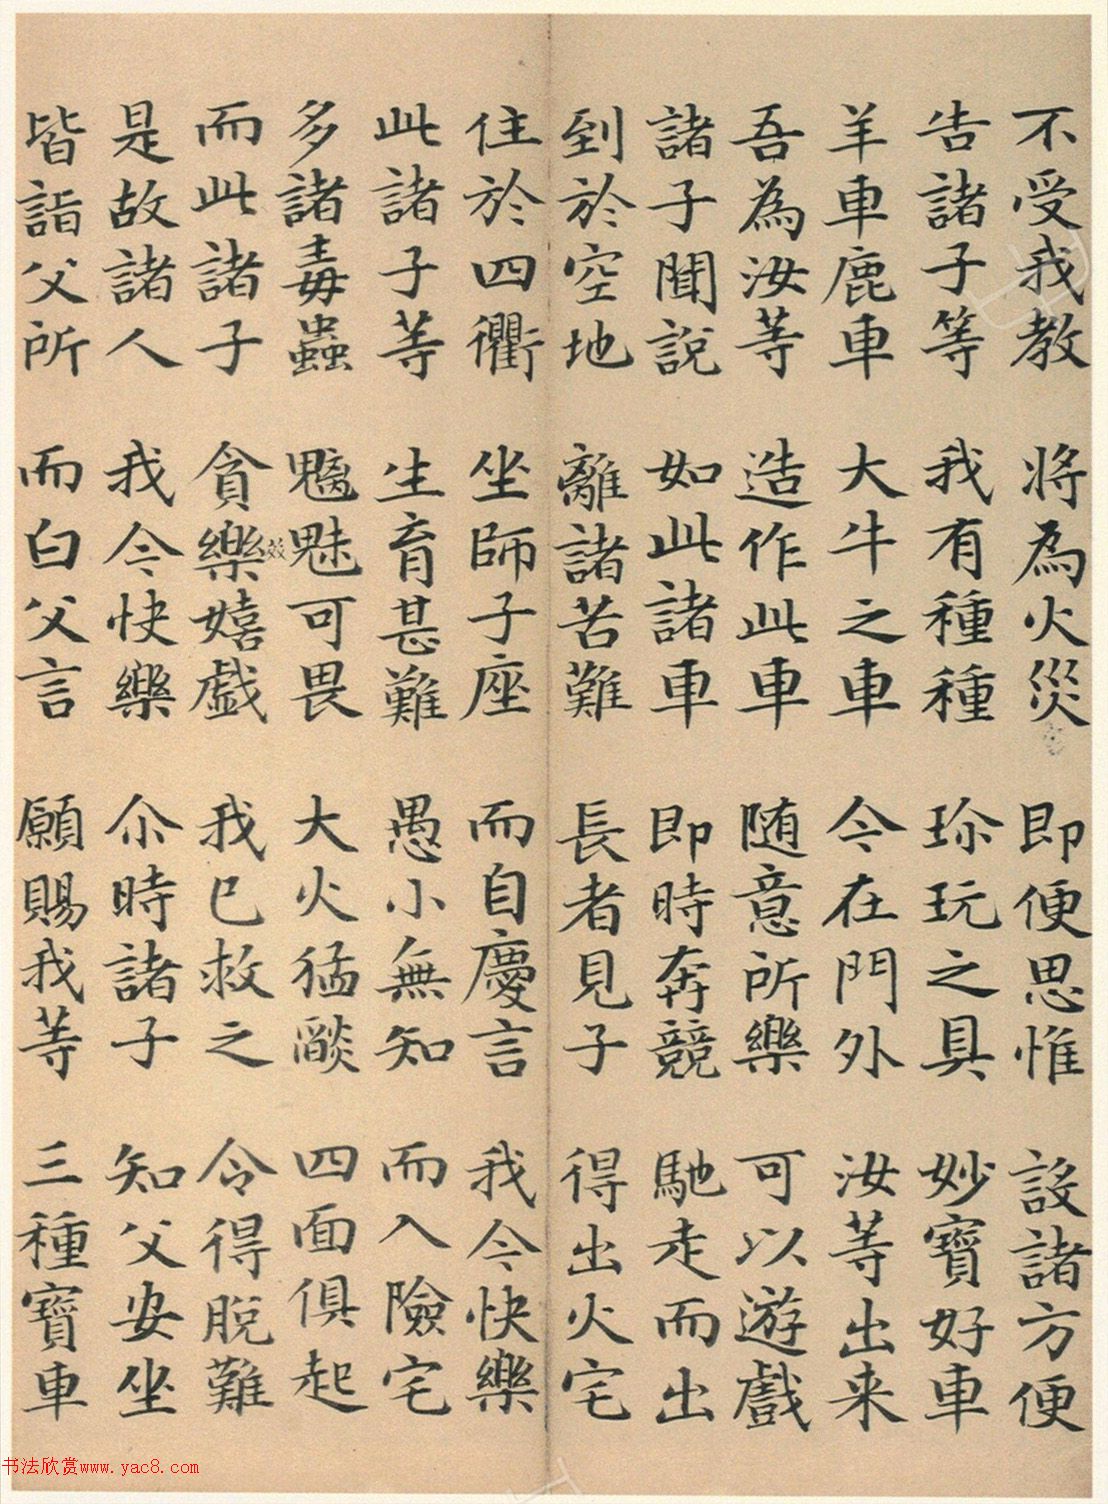 不受我教 將為火災 即便思惟 設諸方便
告諸子等 我有種種 珎玩之具 妙寶好車
羊車鹿車 大牛之車 今在門外 汝等出来
吾為汝等 造作此車 随意所樂 可以遊戲
諸子聞說 如此諸車 即時奔競 馳走而出
到於空地 離諸苦難 長者見子 得出火宅
住於四衢 坐師子座 而自慶言 我今快樂
此諸子等 生育甚難 愚小無知 而入險宅
多諸毒蟲 魑魅可畏 大火猛燄 四面俱起
而此諸子 貪樂嬉戲 我已救之 令得脫難
是故諸人 我今快樂 尒時諸子 知父安坐
皆詣父所 而白父言 願賜我等 三種寶車
书法欣赏www.yac8.com